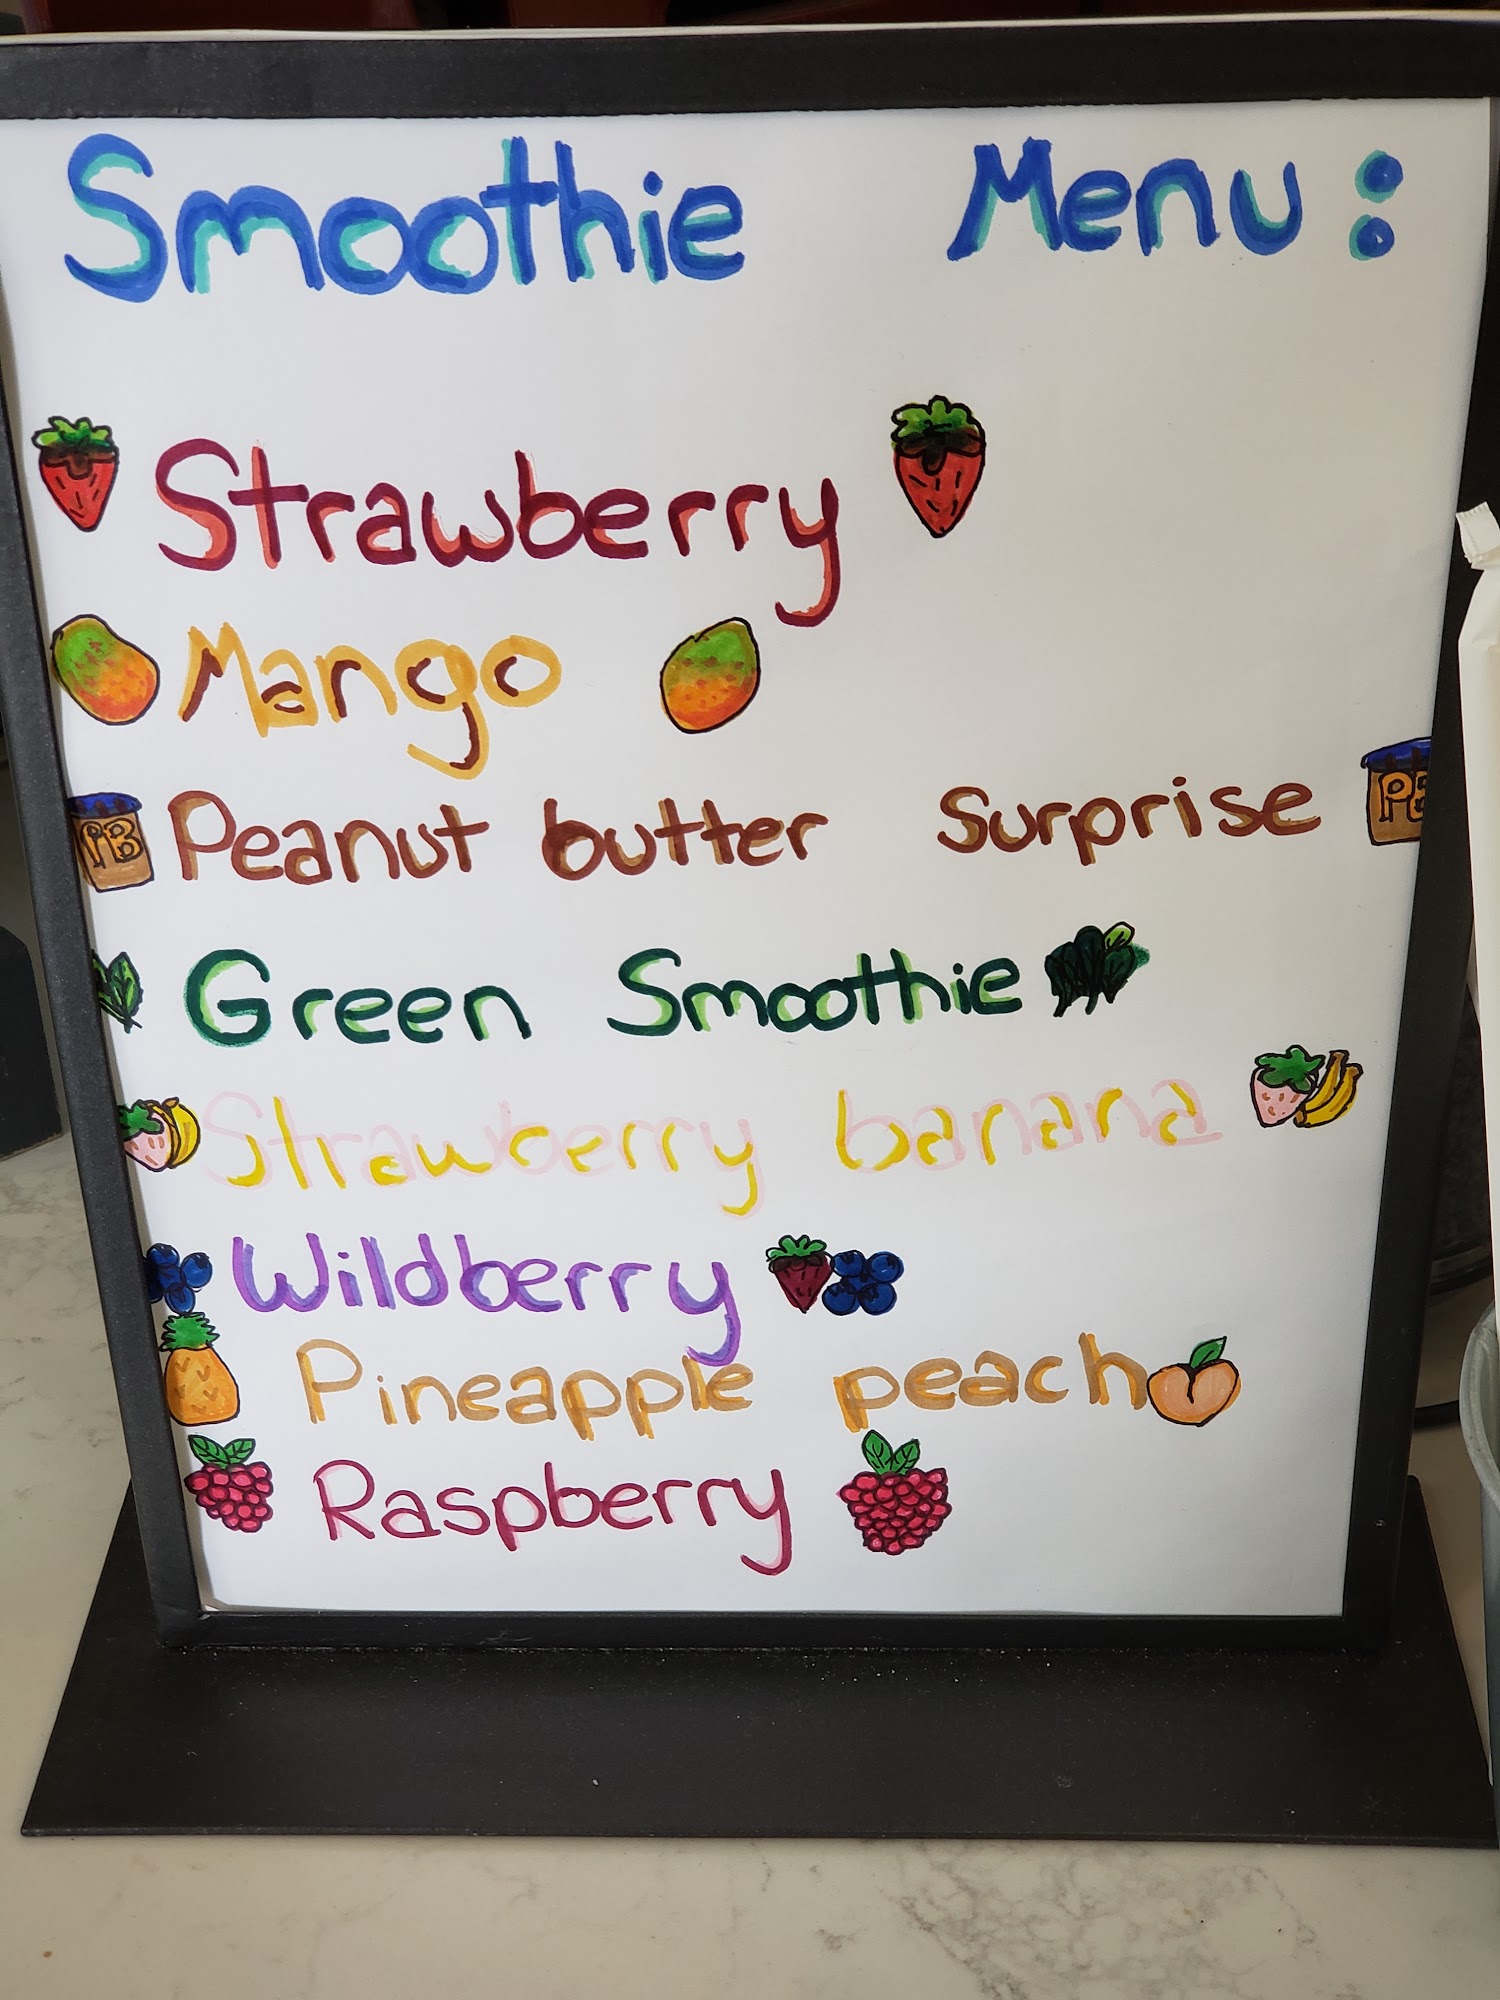 Smoothie Menu:
Strawberry
Mango
PB Peanut butter Surprise
Green Smoothie
Strawberry banana
Wildberry
Pineapple peach
Raspberry